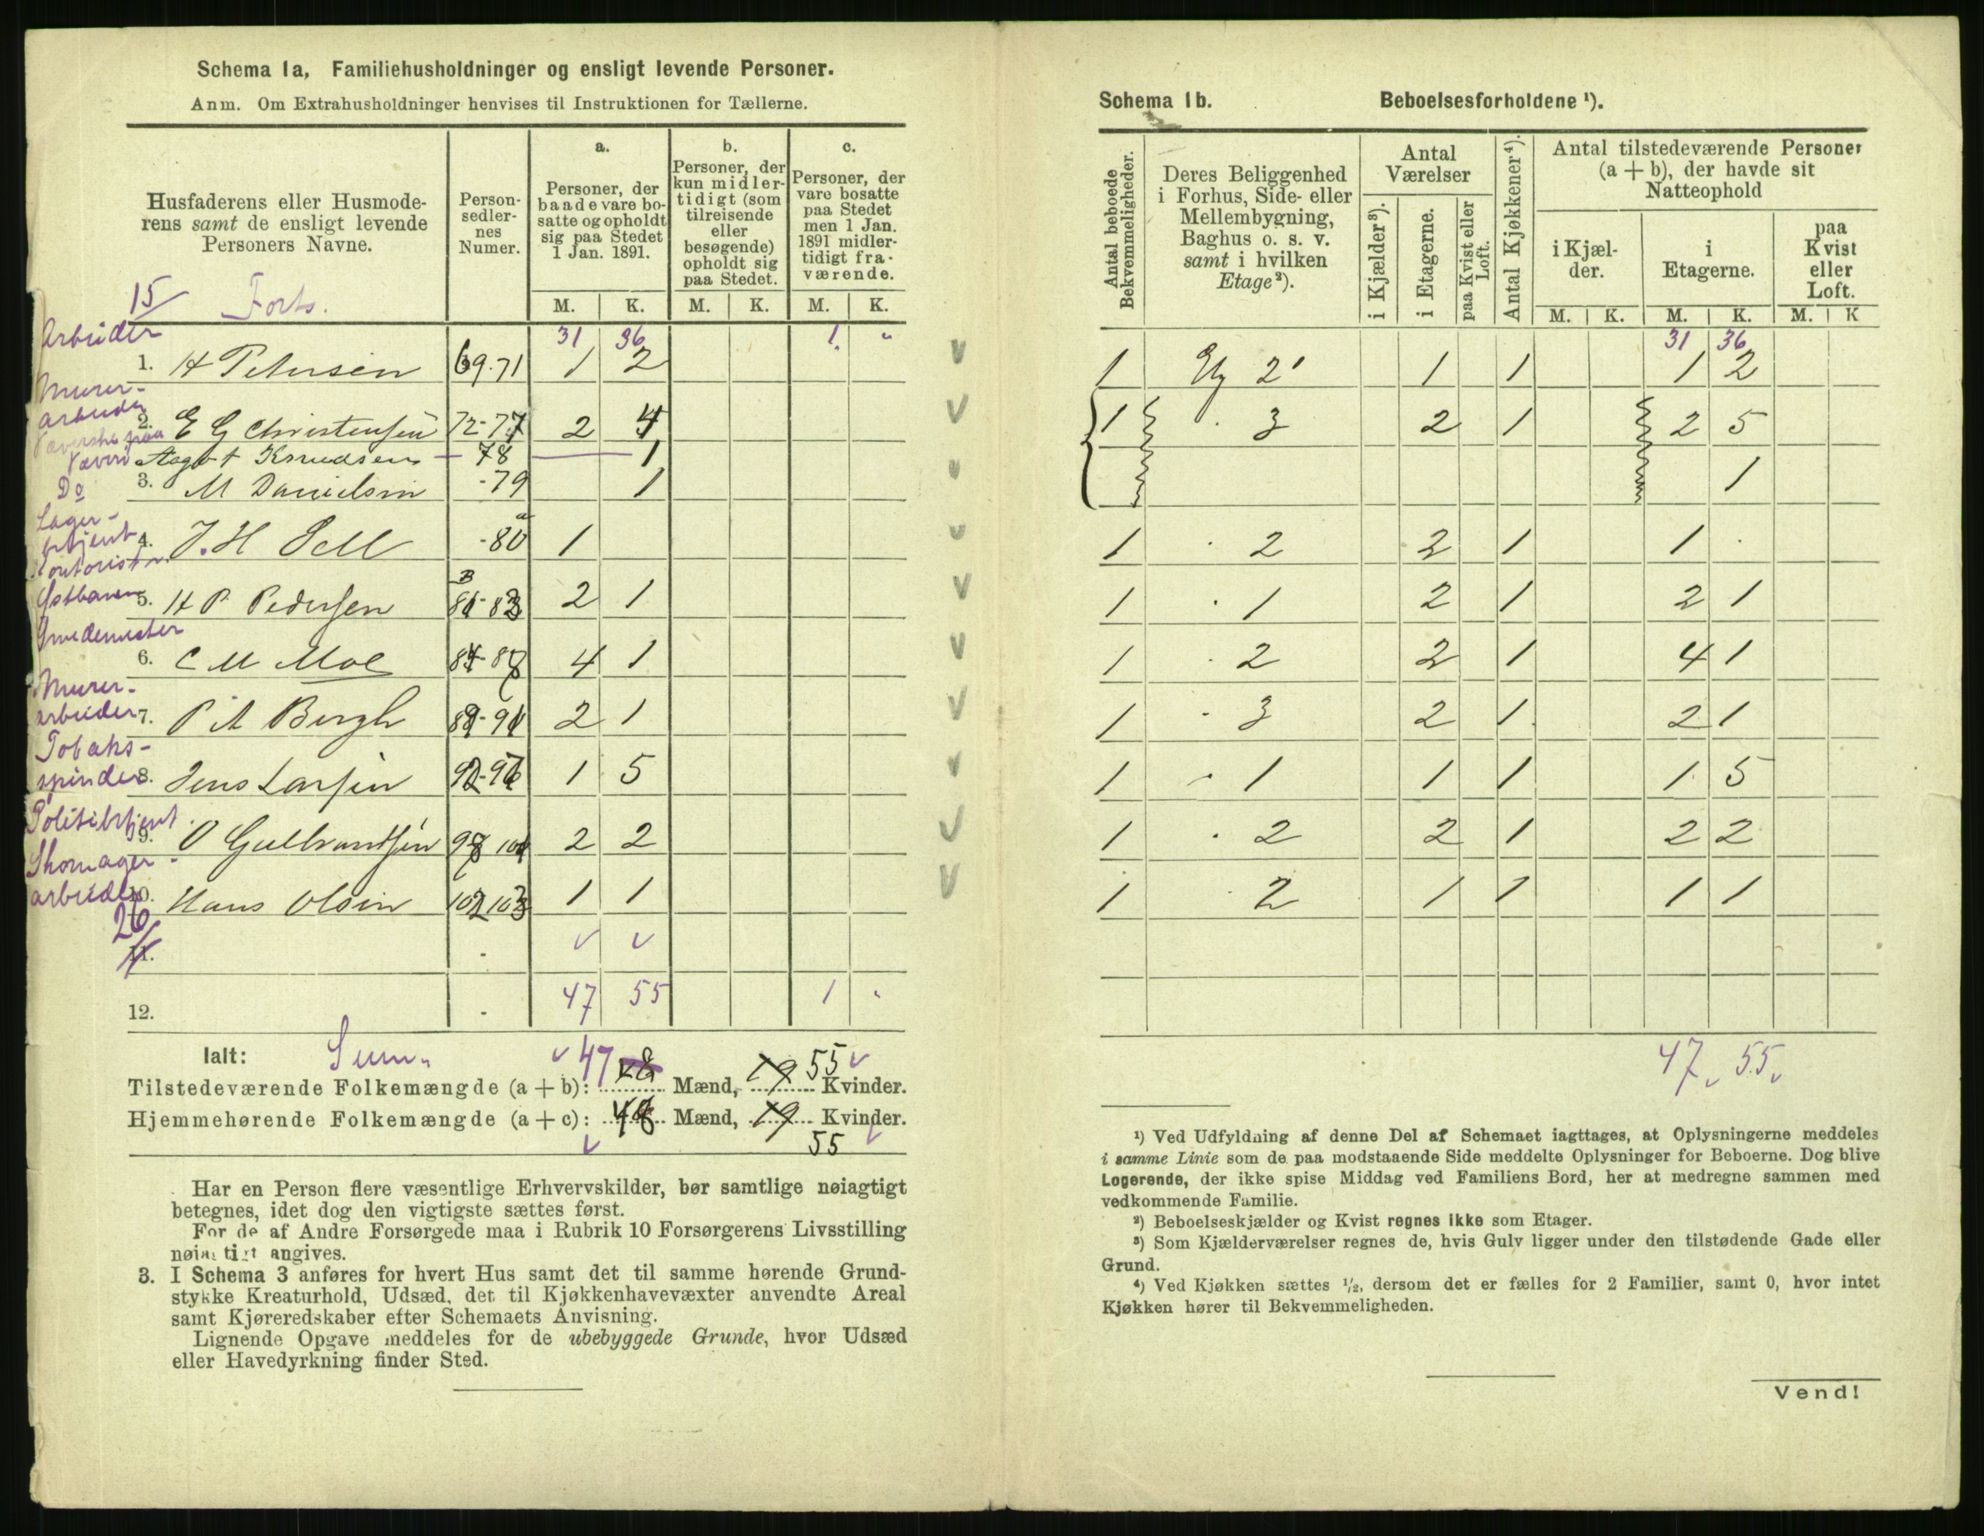 Schema 1a, Familiehusholdninger og ensligt levende Personer.
Anm. Om Extrahusholdninger henvises til Instruktionen for Tællerne.
Husfaderens eller Husmoderens samt de ensligt levende Personers Navne.
Personsedlernes Numer.
a. Personer, der baade vare bosatte og opholdt sig paa Stedet 1 Jan. 1891.
b. Personer, der kun midlertidigt (som tilreisende eller besøgende) opholdt sig paa Stedet.
c. Personer, der vare bosatte paa Stedet men 1 Jan. 1891 midlertidigt fraværende.
M. K. M. K. M. K.
15 Forts.
31 36 1 "
Arbeider
1. H Petersen 69-71 1 2
Murer-
arbeider
2. E G Christensen 72-77 2 4
Væverske paa
Væveri Aagot Knudsen - 78 1
Do 3. M Danielsen -79 1
Lager-
betjent 4. J. H Sell -80 a 1
Kontorist v.
Østbanen 5. H P Pedersen B 81-83 2 1
Smedemester
6. C M Moe 84-88 4 1
Murer-
arbeider 7. P A Bergh 89-91 2 1
Tobaks-
spinder 8. Jens Larsen 92-97 1 5
Politibetjent
9. O Gulbrandsen 98 101 2 2
Skomager-
arbeider 10. Hans Olsen 102 103 1 1
26
11. v v
12. 47 55 1 "
Ialt: Sum.
Tilstedeværende Folkemængde (a + b): 47 Mænd, 19 55 Kvinder.
Hjemmehørende Folkemængde (a + c): 48 Mænd, 19 Kvinder.
55
Har en Person flere væsentlige Erhvervskilder, bør samtlige nøiagtigt
betegnes, idet dog den vigtigste sættes først.
For de af Andre Forsørgede maa i Rubrik 10 Forsørgerens Livsstilling
nøiagtigt angives.
3. I Schema 3 anføres for hvert Hus samt det til samme hørende Grund-
stykke Kreaturhold, Udsæd, det til Kjøkkenhavevæxter anvendte Areal
samt Kjøreredskaber efter Schemaets Anvisning.
Lignende Opgave meddeles for de ubebyggede Grunde, hvor Udsæd
eller Havedyrkning finder Sted.
Schema 1b. Beboelsesforholdene ¹).
Antal beboede Bekvemmeligheder.
Deres Beliggenhed i Forhus, Side- eller Mellembygning, Baghus o. s. v. samt i hvilken Etage ²).
Antal Værelser
i Kjælder ³).
i Etagerne.
paa Kvist eller Loft.
Antal Kjøkkener ⁴).
Antal tilstedeværende Personer (a + b), der havde sit Natteophold
i Kjælder.
i Etagerne.
paa Kvist eller Loft.
M. K. M. K. M. K
31 36
1 2 1 1 1 2
1 3 2 1 2 5
1
1 2 2 1 1
1 1 2 1 2 1
1 2 2 1 4 1
1 3 2 1 2 1
1 1 1 1 1 5
1 2 2 1 2 2
1 2 1 1 1 1
47 55
¹) Ved Udfyldning af denne Del af Schemaet iagttages, at Oplysningerne meddeles
i samme Linie som de paa modstaaende Side meddelte Oplysninger for Beboerne. Dog blive
Logerende, der ikke spise Middag ved Familiens Bord, her at medregne sammen med
vedkommende Familie.
²) Beboelseskjælder og Kvist regnes ikke som Etager.
³) Som Kjælderværelser regnes de, hvis Gulv ligger under den tilstødende Gade eller
Grund.
⁴) Ved Kjøkken sættes ½, dersom det er fælles for 2 Familier, samt 0, hvor intet
Kjøkken hører til Bekvemmeligheden.
Vend!